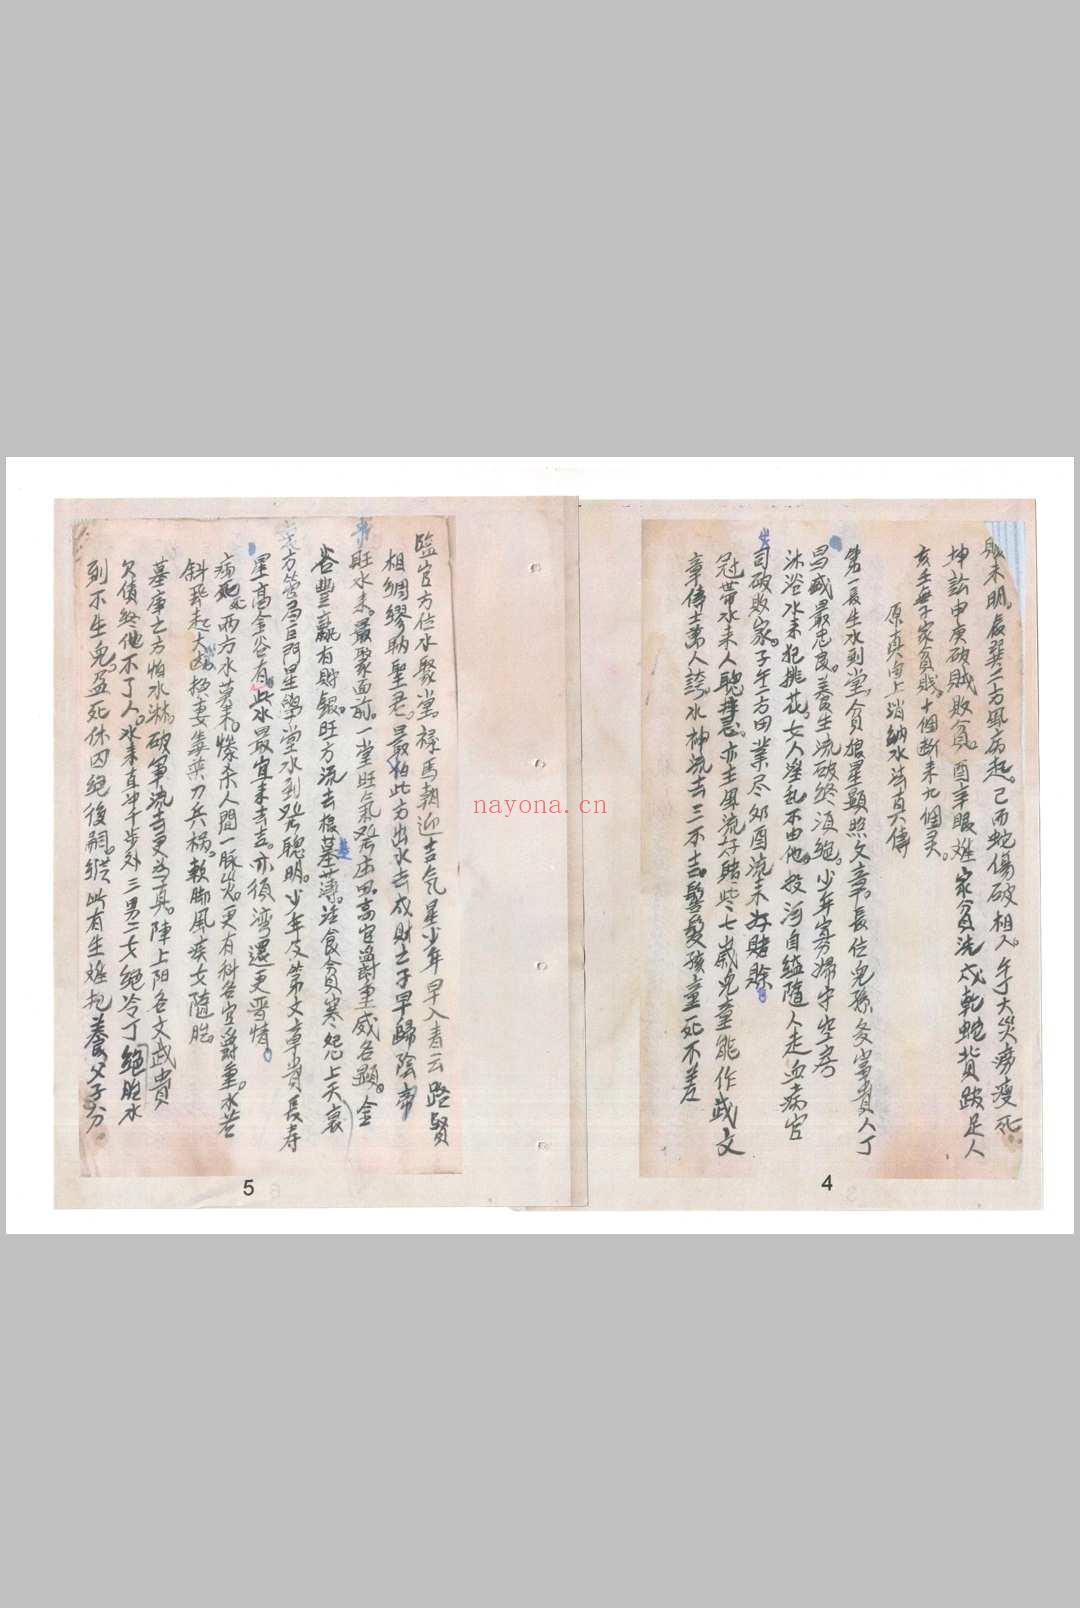 賍未明。辰巽二方風病起。己丙蛇傷破相人。午丁大災癆瘦死
坤訟申庚破賊敗貧。酉辛眼难家貧洗戌乾蛇背跛足人
亥壬無子家貧賎。十個斷来九個灵。
原真向上消納水法真傳
第一長生水到堂。貪狼星顕照文章。長位児孫多富貴人丁
昌盛最忠良。養生流破终須絕。少年寡孀守空房
沐浴水来犯桃花。女人淫乱不由他。投河自縊隨人走血病官
司破敗家。子午二方田業尽卯酉流来好賭賒
冠带水来人聰慧。亦主風流好賭些七歲児童能作賦文
章傳士萬人誇。水神流去三不吉。髫髮孩童死不差
4
臨官方位水聚堂。禄馬朝迎吉气星少年早入青云路賢
相綢繆助聖君。最怕此方出水去成財之子早歸陰帝
旺水来。最聚面前。一堂旺氣發庄田。高官爵重威名顯。金
谷豐贏有財銀。旺方流去根基薄。法食貧寒怨上天衰
方管局巨門星學堂水到發聰明。少年及第文章貴長寿
星高金谷有。此水最宜来去吉。亦須湾還更晋情。
病死两方水莫来。惨杀人間一脉炎。更有科名官爵重。水若
斜飛起大凶损妻毒藥刀兵祸。軟脚風疾女隨胎。
墓庫之方怕水淋。破軍流去更为真。陣上阳名文武貴
欠債终他不了人。水来直冲半步外三男二女絕冷丁絕胞水
到不生児。孟死休囚絕後嗣。縱此有生难把養父子分
5
nayona.cn